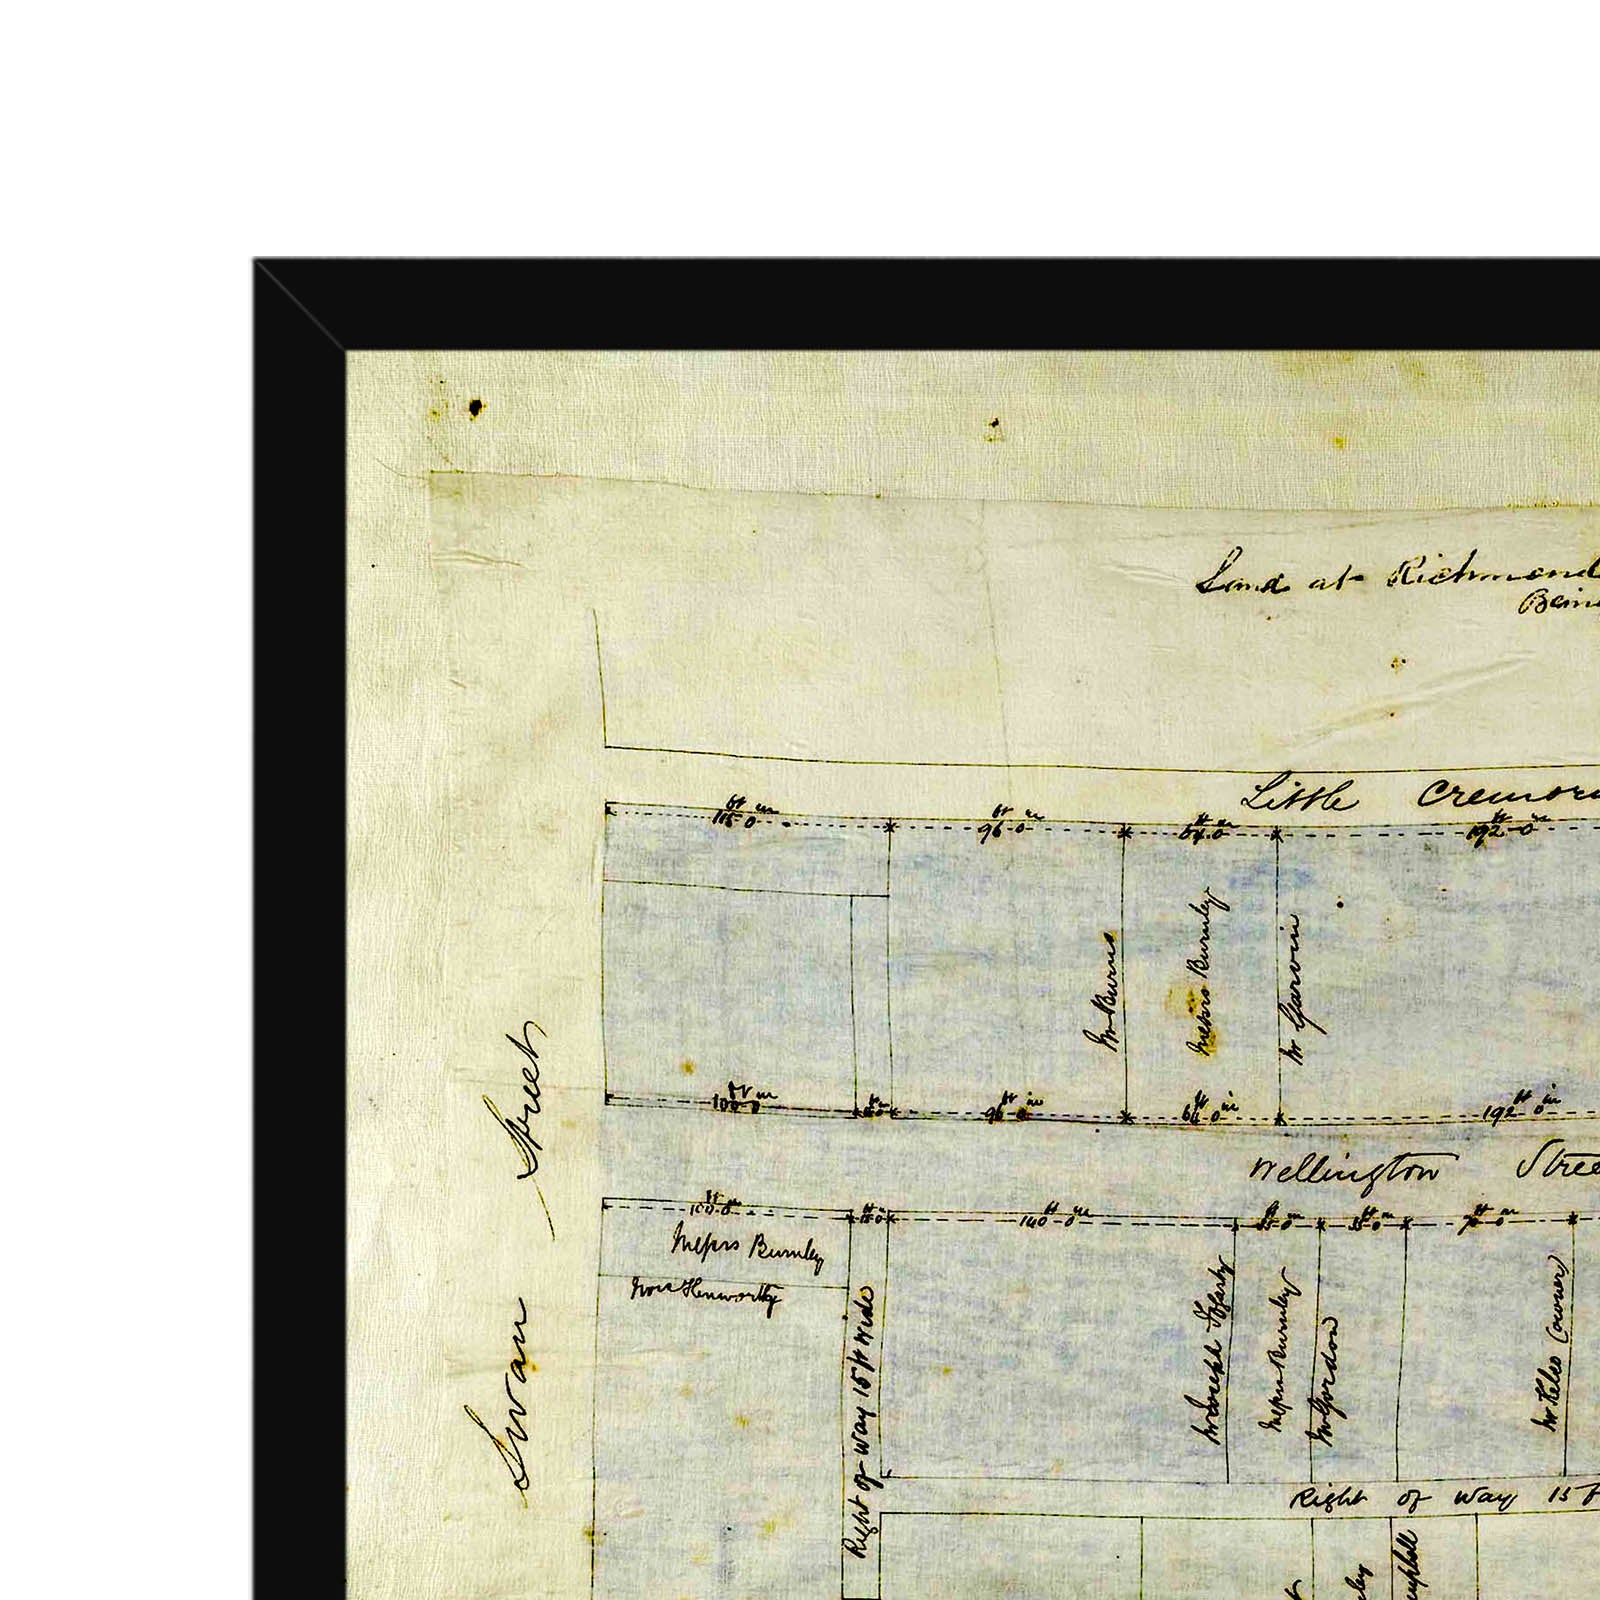 Land at Richmond
Being
Little Cremorn
ft in
115 0
ft in
96 0
ft in
64 0
ft in
192 0
Mr Burns
Messrs Burnley
Mr Garvin
ft in
100 0
ft in
96 0
ft in
64 0
ft in
192 0
Swan Street
Wellington Stree
ft in
100 0
ft in
15 0
ft in
140 0
ft in
35 0
ft in
35 0
ft in
70 0
Messrs Burnley
Right of Way 15 ft Wide
Mr Joseph Fogarty
Messrs Burnley
Mr Gordon
Mr Kelso (owner)
Right of Way 15 f